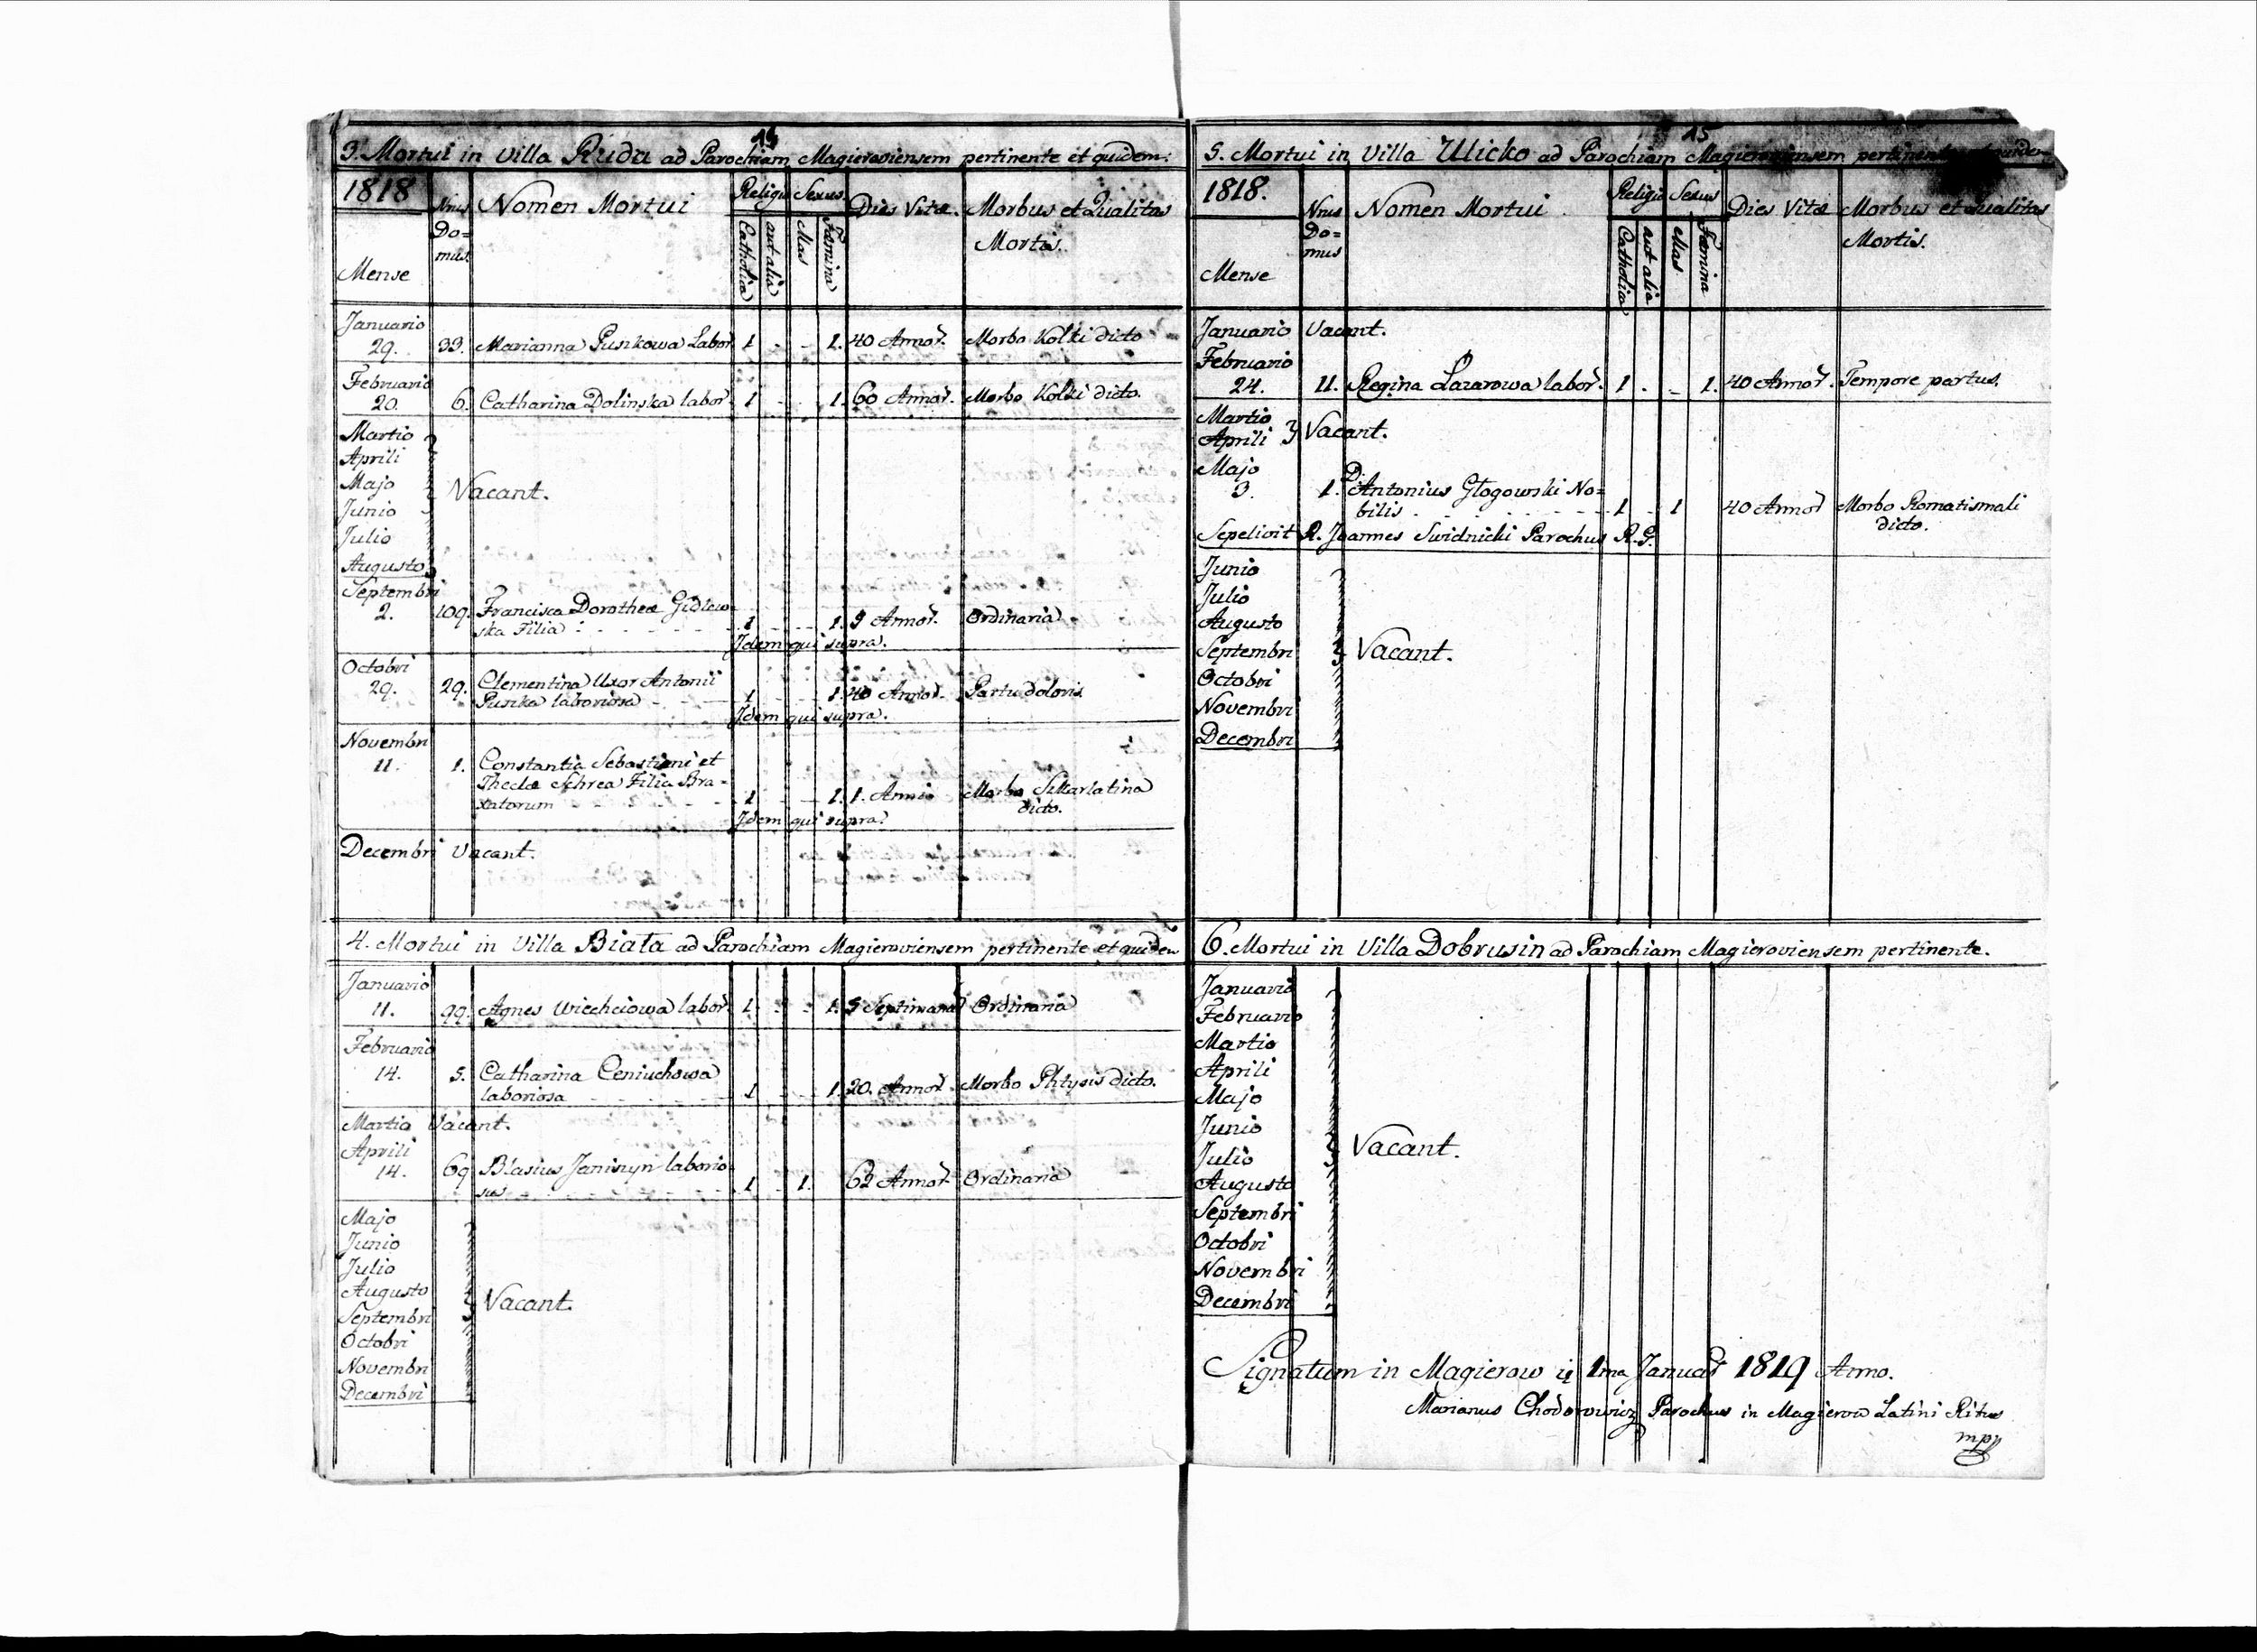 14
3. Mortui in Villa Ruda ad Parochiam Magieroviensem pertinente et quidem:
1818 Nrus Domus Nomen Mortui Religio Sexus Dies Vitæ. Morbus et Qualitas
Do=
mus Mortis.
Mense Catholica aut alia Mas Fæmina
Januario
29. 33. Marianna Puszkowa Labor. 1 - - 1. 40 Annor. Morbo Kolki dicto
Februario
20. 6. Catharina Dolinska labor. 1 - - 1. 60 Annor. Morbo Kolki dicto.
Martio
Aprili
Majo Vacant.
Junio
Julio
Augusto
Septembri
2. 109. Francisca Dorothea Gidlew=
ska Filia 1 1. 9 Annor. Ordinaria
Idem qui supra.
Octobri
29. 29. Clementina Uxor Antonii
Puszka laboriosa 1 1. 40 Annor. Partu doloris
Idem qui supra.
Novembri
11. 1. Constantia Sebastiani et
Theclæ Schrea Filia Bra-
xatorum 1 1. 1. Anni Morbo Szkarlatina
dicto.
Idem qui supra.
Decembri Vacant.
4. Mortui in Villa Biała ad Parochiam Magieroviensem pertinente et quidem
Januario
11. 99. Agnes Wiechciowa labor. 1. - - 1. 5 Septimana Ordinaria
Februario
14. 5. Catharina Ceniuchowa
laboriosa 1 1. 20. Annor. Morbo Phtysis dicto.
Martio Vacant.
Aprili
14. 69 Blasius Janiszyn laborio
sus 1 1. 62 Annor. Ordinaria
Majo
Junio
Julio
Augusto
Septembri Vacant.
Octobri
Novembri
Decembri
15
5. Mortui in Villa Ulicko ad Parochiam Magieroviensem pertinente et quidem
1818. Nrus Nomen Mortui Religio Sexus Dies Vitæ Morbus et Qualitas
Do=
mus Mortis.
Mense Catholica aut alia Mas Fæmina
Januario Vacant.
Februario
24. 11. Regina Lazarowa labor. 1 . - 1. 40 Annor. Tempore partus.
Martio
Aprili Vacant.
Majo
3. 1. D. Antonius Głogowski No=
bilis 1 - 1 40 Annor Morbo Romatismali
dicto.
Sepelivit R. Joannes Swidnicki Parochus R. G.
Junio
Julio
Augusto
Septembri Vacant.
Octobri
Novembri
Decembri
6. Mortui in Villa Dobrusin ad Parochiam Magieroviensem pertinente.
Januario
Februario
Martio
Aprili
Majo
Junio
Julio Vacant.
Augusto
Septembri
Octobri
Novembri
Decembri
Signatum in Magierow 1ma Januar 1819 Anno.
Marianus Chodorowicz Parochus in Magierow Latini Ritus
mpp